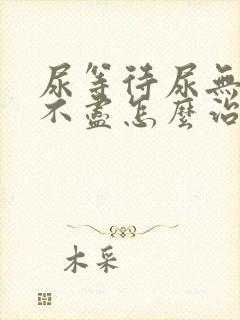 尿等待尿無
不盡怎麼治
木采